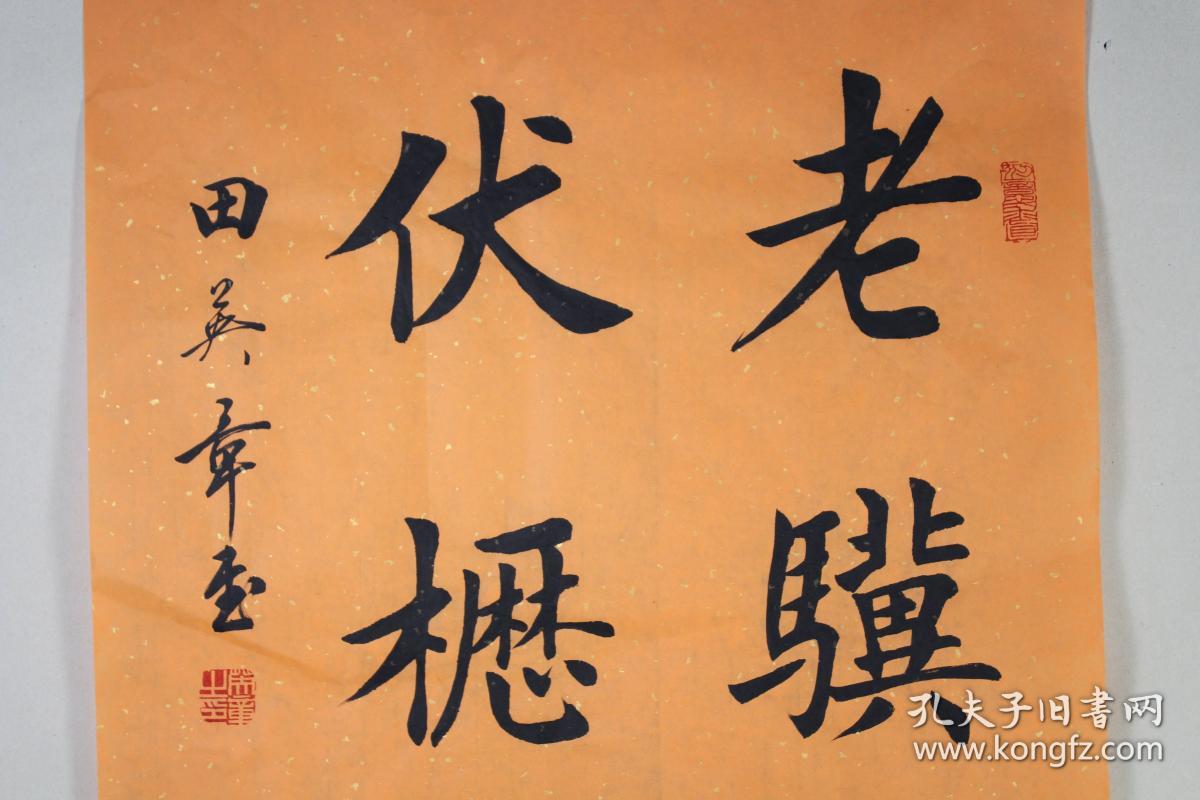 老驥
伏櫪
田英章书
孔夫子旧書网
www.kongfz.com